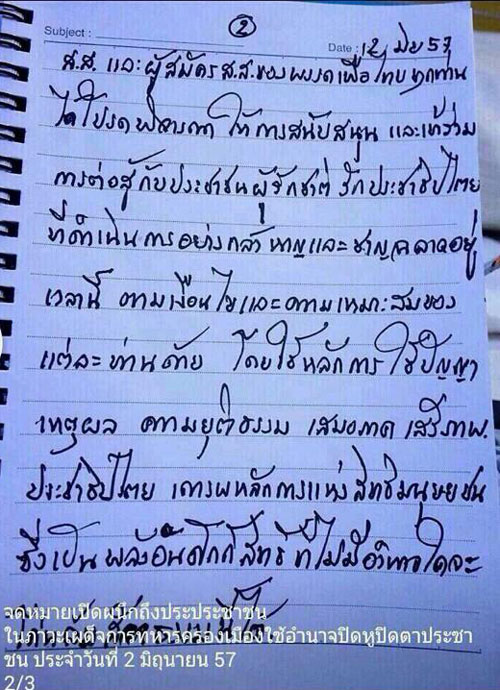 ②
Subject :
Date : 12 มิย 57
ส.ส. และผู้สมัคร ส.ส. ของพรรคเพื่อไทยทุกท่าน
ได้โปรดพิจารณา ให้การสนับสนุน และเข้าร่วม
การต่อสู้กับประชาชนผู้รักชาติ รักประชาธิปไตย
ที่ดำเนินการอย่างกล้าหาญและชาญฉลาดอยู่
เวลานี้ ตามเงื่อนไขและความเหมาะสมของ
แต่ละท่านด้วย โดยใช้หลักการ ใช้ปัญญา
เหตุผล ความยุติธรรม เสมอภาค เสรีภาพ
ประชาธิปไตย เคารพหลักการแห่งสิทธิมนุษยชน
ซึ่งเป็นพลังอันศักดิ์สิทธิ์ ที่ไม่มีอำนาจใดจะ
จดหมายเปิดผนึกถึงประประชาชน
ในภาวะเผด็จการทหารครองเมืองใช้อำนาจปิดหูปิดตาประชา
ชน ประจำวันที่ 2 มิถุนายน 57
2/3